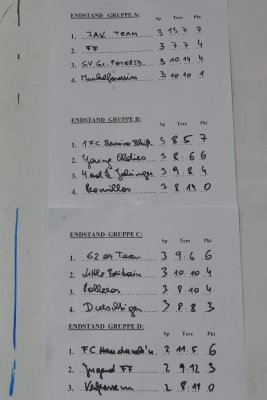 ENDSTAND GRUPPE A:
Sp Tore Pkt
1. JAK TEAM 3 13.7 7
2. FF 3 7.7 4
3. SV Gr. PETERSD. 3 10.14 4
4. 3 10.10 1
ENDSTAND GRUPPE B:
Sp Tore Pkt
1. 1 FC 3 8.5 7
2. Young Oldies 3 8.6 6
3. 3 9.8 4
4. 3 8.14 0
ENDSTAND GRUPPE C:
Sp Tore Pkt
1. 62 er Team 3 9.6 6
2. Little Britain 3 10.10 4
3. 3 8.10 4
4. 3 8.8 3
ENDSTAND GRUPPE D:
Sp Tore Pkt
1. FC 2 11.5 6
2. Jugend FF 2 9.12 3
3. 2 8.11 0